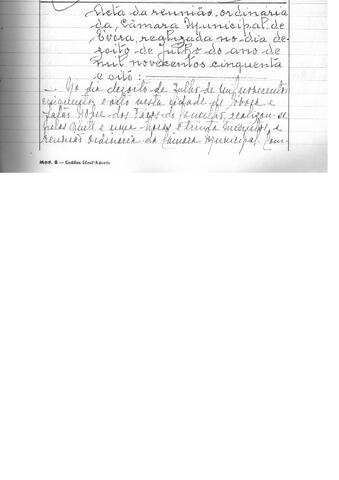 Acta da reunião ordinaria
da Câmara Municipal de
Évora, realizada no dia de-
zoito de Julho do ano de
mil novecentos cinquenta
e oito:
No dia dezoito de Julho de mil novecentos
cinquenta e oito nesta cidade de Evora e
Salão Nobre dos Paços do Concelho, realizou-se
pelas vinte e uma horas e trinta minutos, a
reunião ordinaria da Câmara Municipal, com-
Mod. 8 — Gráfica